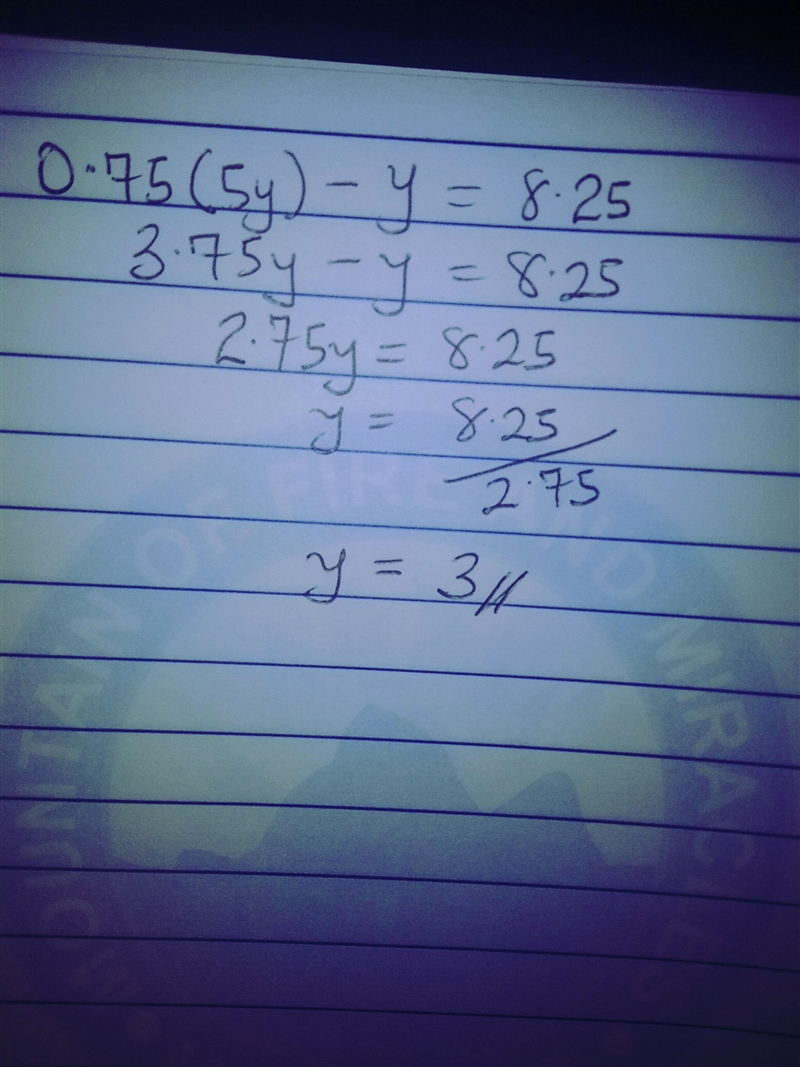 0.75(5y) - y = 8.25
3.75y - y = 8.25
2.75y = 8.25
y = 8.25
2.75
y = 3
MOUNTAIN OF FIRE AND MIRACLES